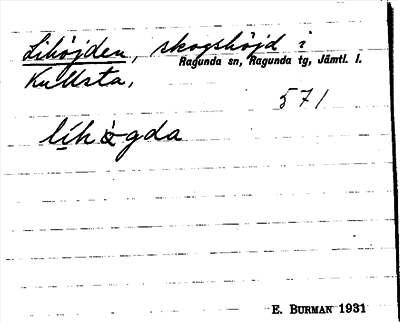 Lihöjden, skogshöjd i
Ragunda sn, Ragunda tg, Jämtl. l.
Kullsta,
571
E. BURMAN 1931